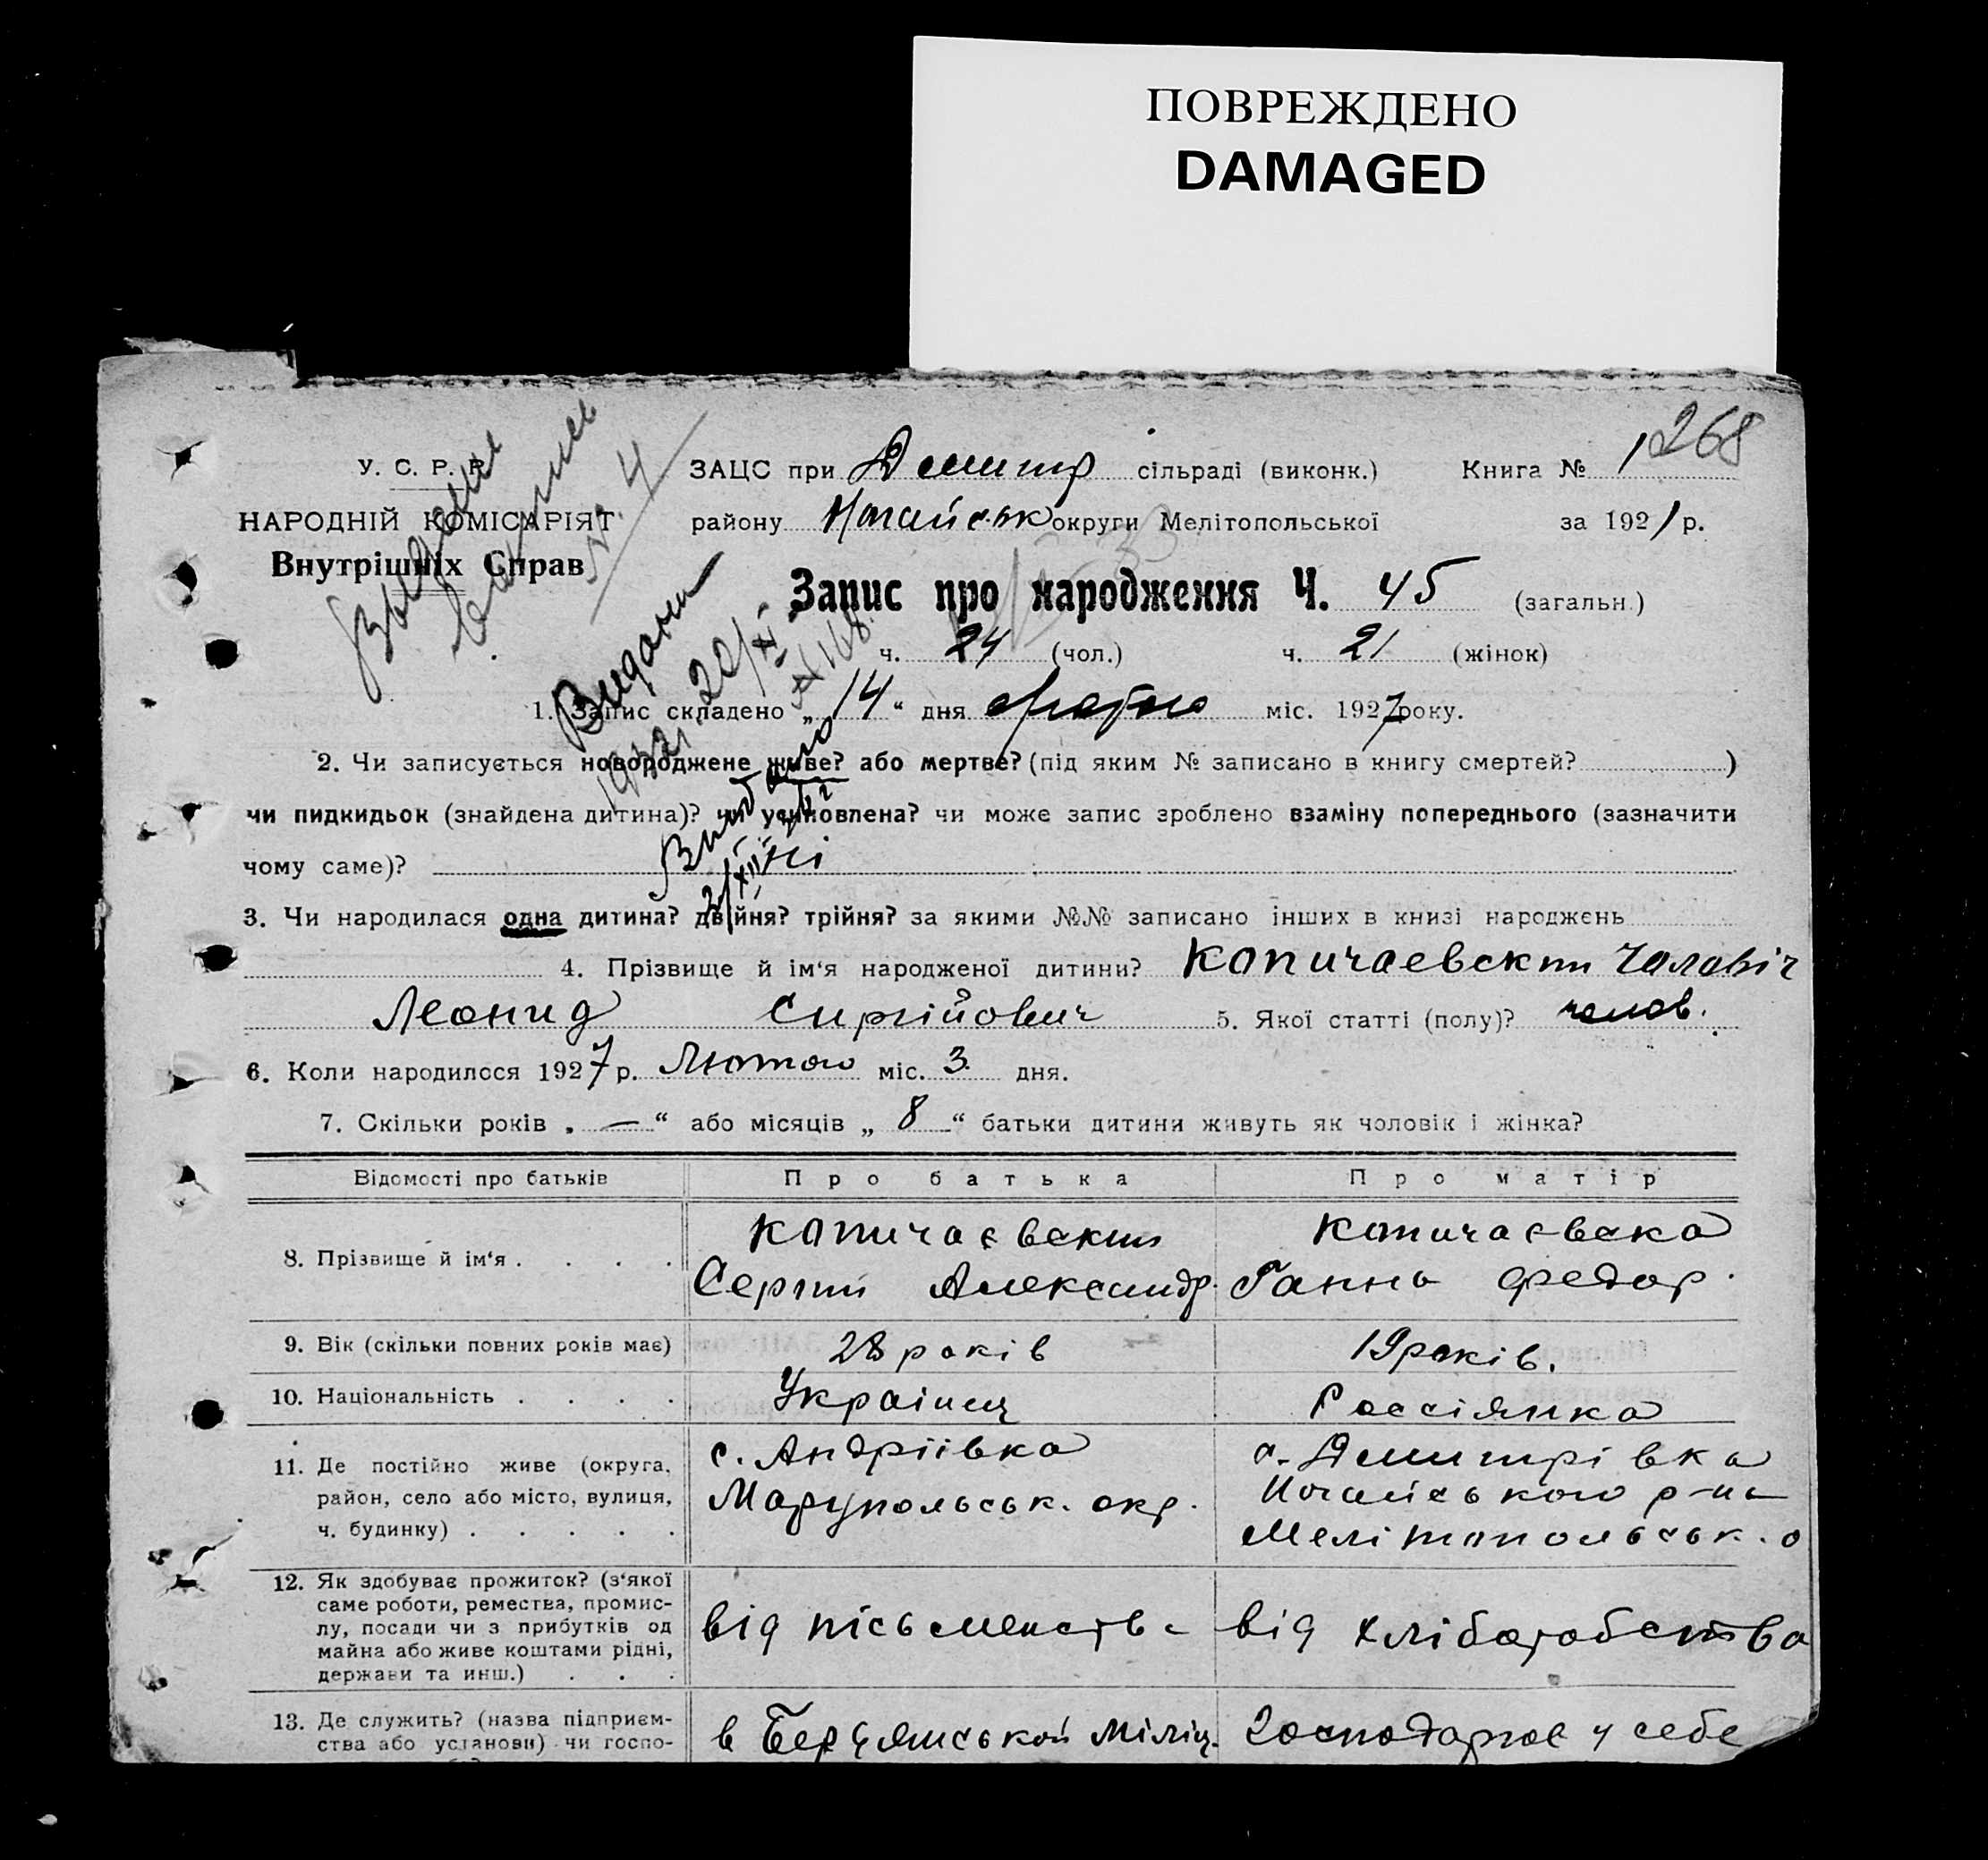 ПОВРЕЖДЕНО
DAMAGED
268
У. С. Р. Р.
НАРОДНІЙ КОМІСАРІЯТ
Внутрішніх Справ
ЗАЦС при Демитр сільраді (виконк.) Книга № 1
району Ногайськ округи Мелітопольської за 192 р.
Запис про народження Ч. 45 (загальн.)
ч. 24 (чол.) ч. 21 (жінок)
1. Запис складено „ 14 “ дня лютого міс. 1927 року.
2. Чи записується новороджене живе? або мертве? (під яким № записано в книгу смертей? )
чи пидкидьок (знайдена дитина)? чи усиновлена? чи може запис зроблено взаміну попереднього (зазначити
чому саме)? ні
3. Чи народилася одна дитина? двійня? трійня? за якими №№ записано інших в книзі народжень
4. Прізвище й ім‘я народженої дитини? Копичаевский Чаловіч
Леонид Сиргійович 5. Якої статті (полу)? челов.
6. Коли народилося 1927 р. Лютого міс. 3 дня.
7. Скільки років „ — “ або місяців „ 8 “ батьки дитини живуть як чоловік і жінка?
Відомості про батьків Про батька Про матір
8. Прізвище й ім‘я . . . . Копичаєвский Копичаєвска
Сергий Александр. Ганна Федор.
9. Вік (скільки повних років має) 28 років 19 років.
10. Національність . . . . Українец Россіянка
11. Де постійно живе (округа, район, село або місто, вулиця, ч. будинку) . . . . . с. Андріівка
Маріупольськ. окр.
с. Демитрівка
Ногайського р-на
Мелітопольськ. о
12. Як здобуває прожиток? (з‘якої
саме роботи, ремества, промис-
лу, посади чи з прибутків од
майна або живе коштами рідні,
держави та инш.) . . .
від пісьменства від хліборобства
13. Де служить? (назва підприєм-
ства або установи) чи госпо-
в Бердянській міліц. господарює у себе
Выдана
№ 4
Видан
1932 20/XI
№ 168
Видано
2/XII